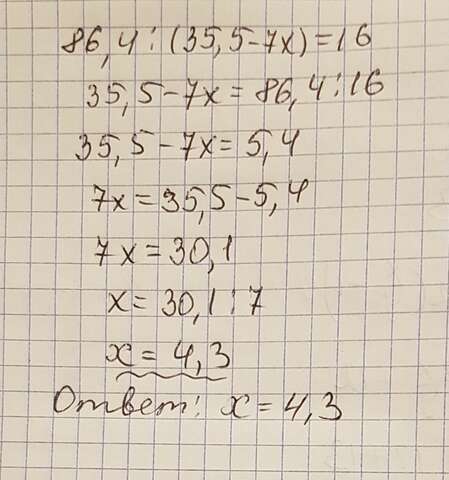 86,4:(35,5-7x)=16
35,5-7x=86,4:16
35,5-7x=5,4
7x=35,5-5,4
7x=30,1
x=30,1:7
x=4,3
Ответ: x=4,3